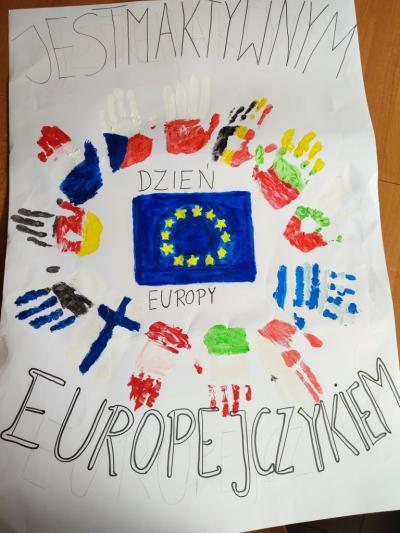 JESTMAKTYWNYM
DZIEŃ
EUROPY
EUROPEJCZYKIEM